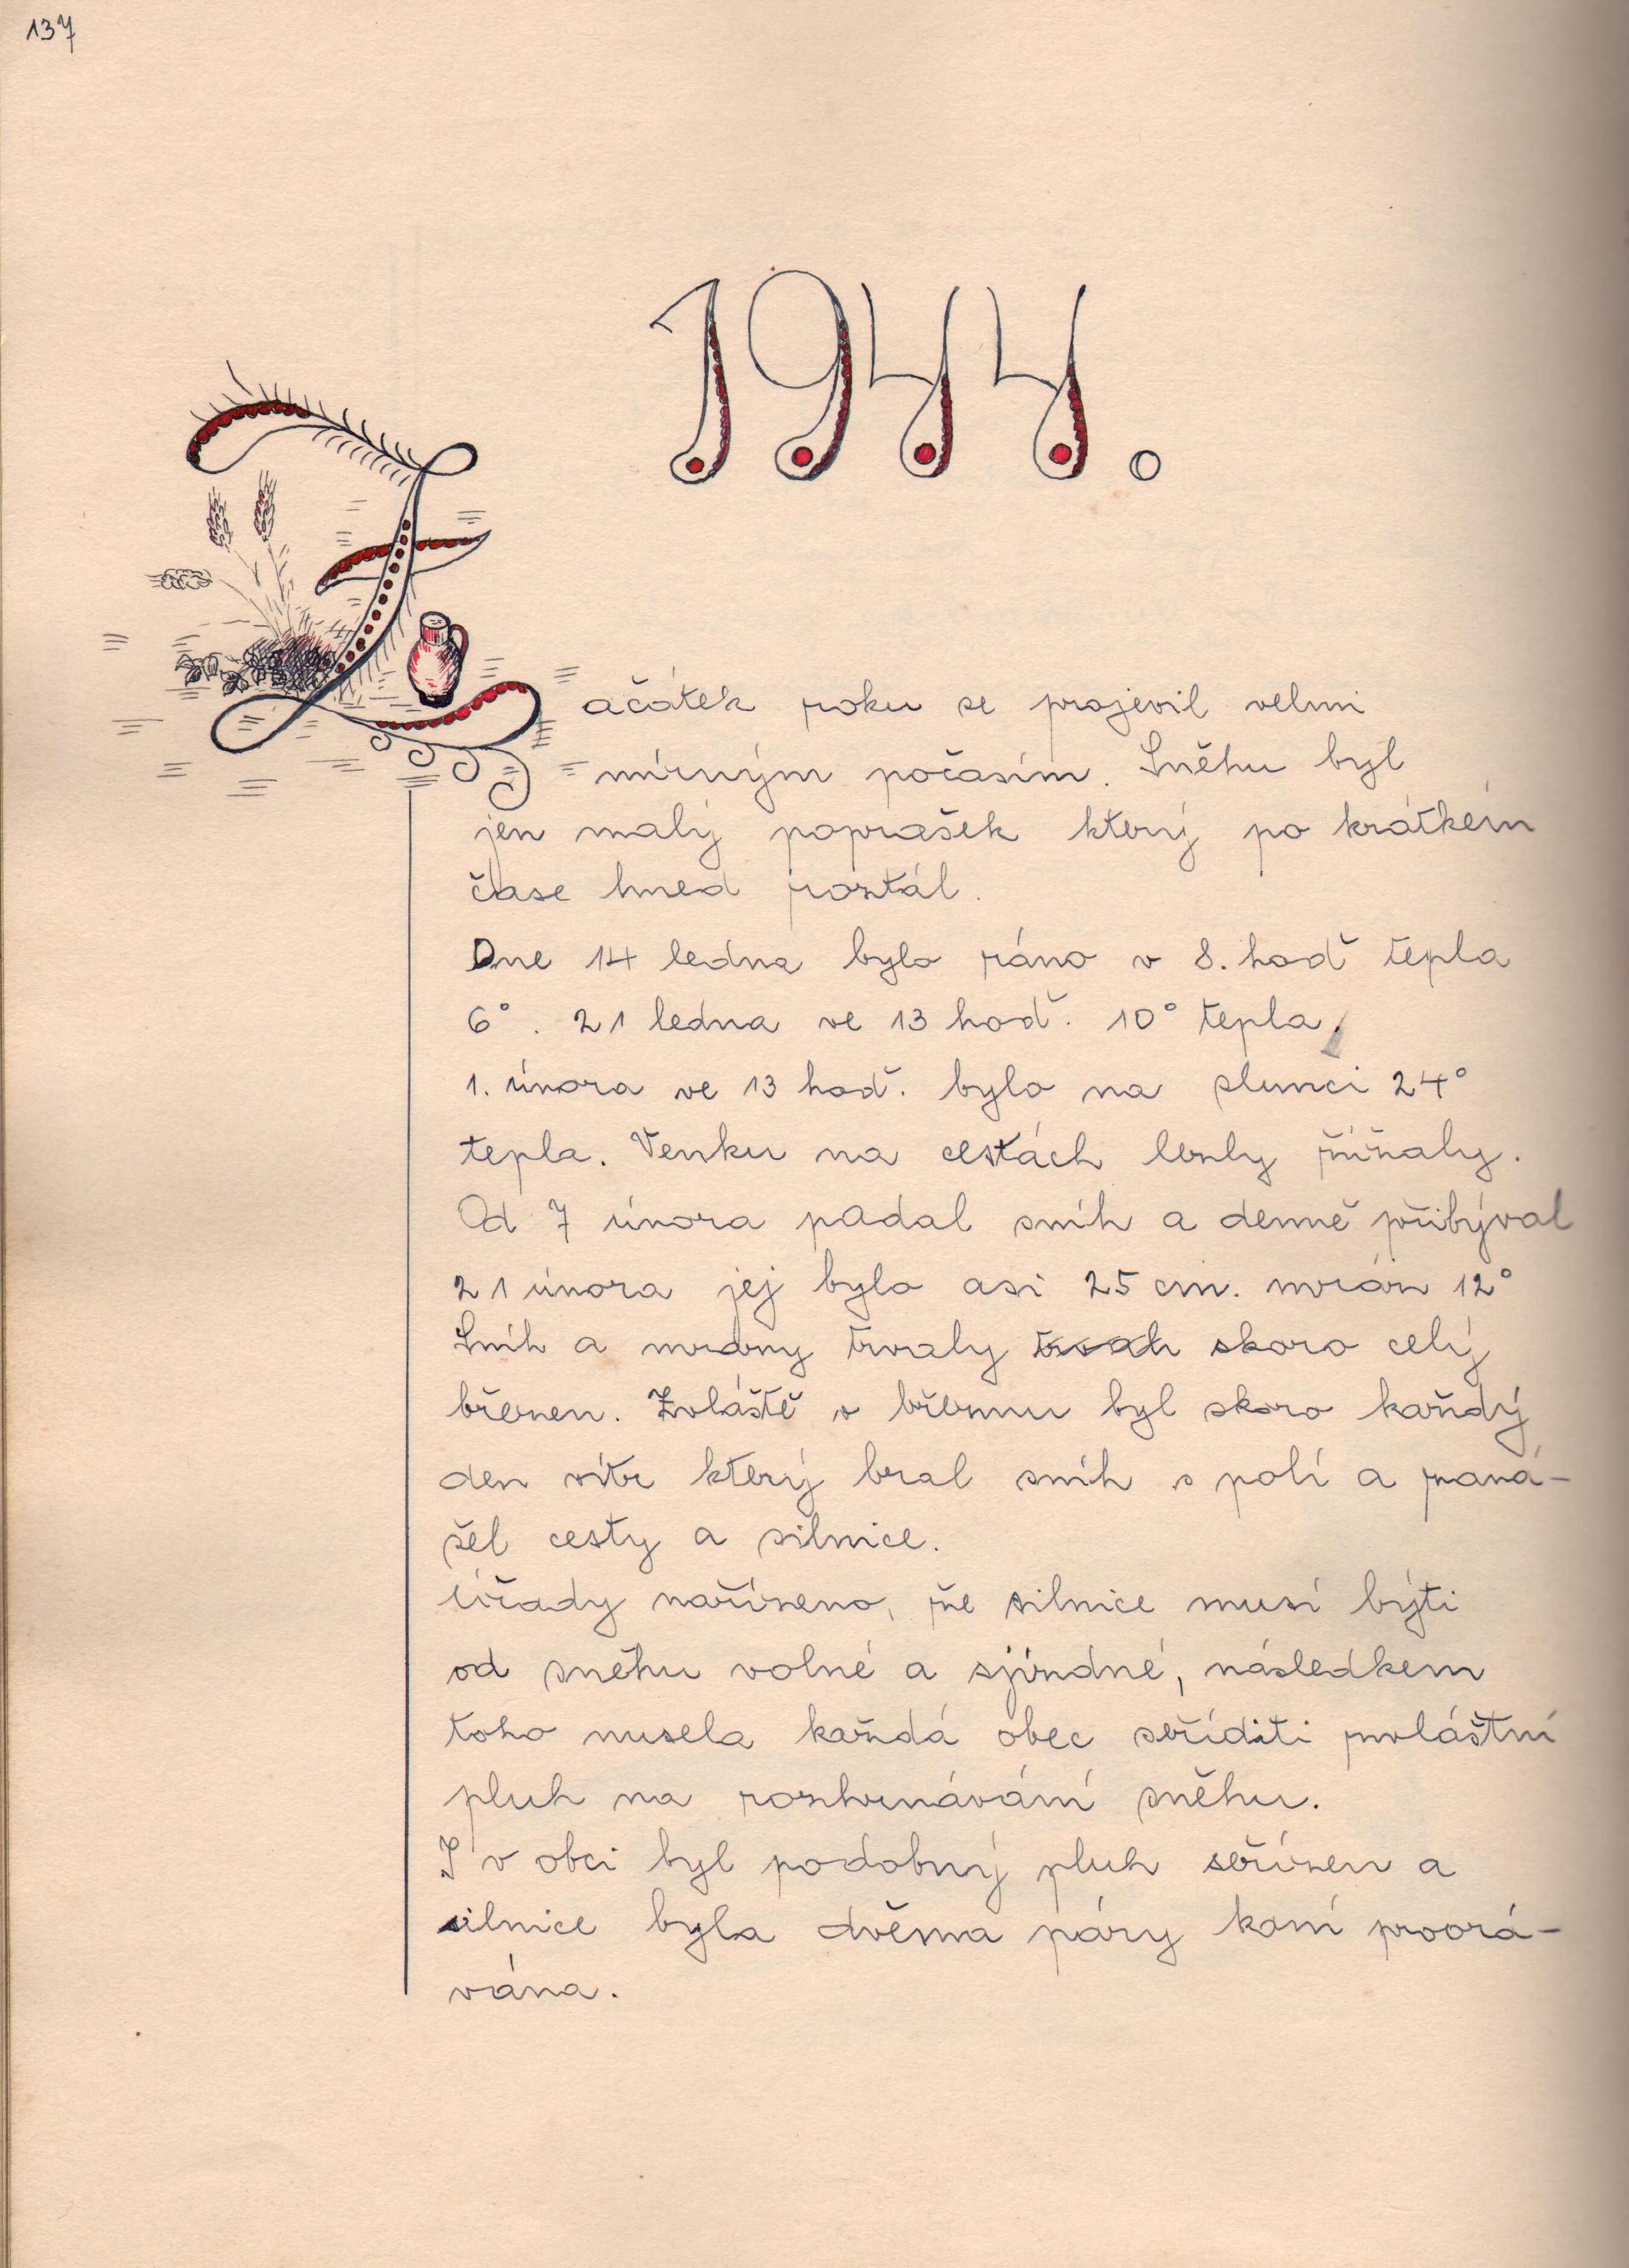 137
1944.
Začátek roku se projevil velmi
mírným počasím. Sněhu byl
jen malý poprašek který po krátkém
čase hned roztál.
Dne 14 ledna bylo ráno v 8. hoď tepla
6°. 21 ledna ve 13 hoď. 10° tepla,
1. února ve 13 hoď. bylo na slunci 24°
tepla. Venku na cestách lezly žížaly.
Od 7 února padal sníh a denně přibýval
21 února jej bylo asi 25 cm. mráz 12°
Sníh a mrazy trvaly skoro celý
březen. Zvláště v březnu byl skoro každý
den vítr který bral sníh s polí a zaná-
šel cesty a silnice.
Úřady nařízeno, že silnice musí býti
od sněhu volné a sjízdné, následkem
toho musela každá obec seříditi zvláštní
pluh na rozhrnávání sněhu.
I v obci byl podobný pluh seřízen a
silnice byla dvěma páry koní proorá-
vána.